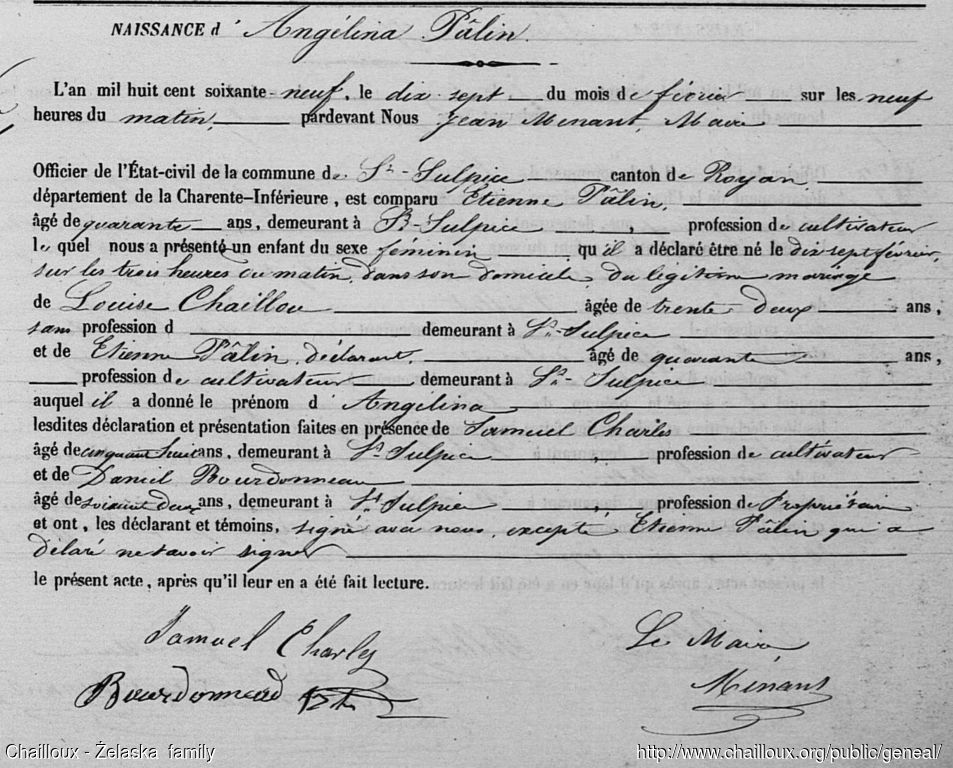 NAISSANCE d' Angélina Pâlin.
L'an mil huit cent soixante neuf, le dix sept du mois de février sur les neuf
heures du matin, pardevant Nous Jean Menant, Maire
Officier de l'État-civil de la commune de St-Sulpice canton de Royan,
département de la Charente-Inférieure, est comparu Etienne Pâlin,
âgé de quarante ans, demeurant à St-Sulpice, profession de cultivateur
le quel nous a présenté un enfant du sexe féminin qu'il a déclaré être né le dix sept février,
sur les trois heures du matin, dans son domicile, du légitime mariage
de Louise Chaillou âgée de trente deux ans,
sans profession d demeurant à St-Sulpice
et de Etienne Pâlin, déclarant, âgé de quarante ans,
profession de cultivateur demeurant à St-Sulpice
auquel il a donné le prénom d'Angélina
lesdites déclaration et présentation faites en présence de Samuel Charles
âgé de cinquant huit ans, demeurant à St-Sulpice, profession de cultivateur
et de Daniel Bourdonneau
âgé de soixant deux ans, demeurant à St Sulpice, profession de Propriétaire
et ont, les déclarant et témoins, signé avec nous, excepté Etienne Pâlin qui a
délaré ne savoir signer
le présent acte, après qu'il leur en a été fait lecture.
Samuel Charles Le Maire,
Bourdonneau Menant
Chailloux - Želaska family http://www.chailloux.org/public/geneal/